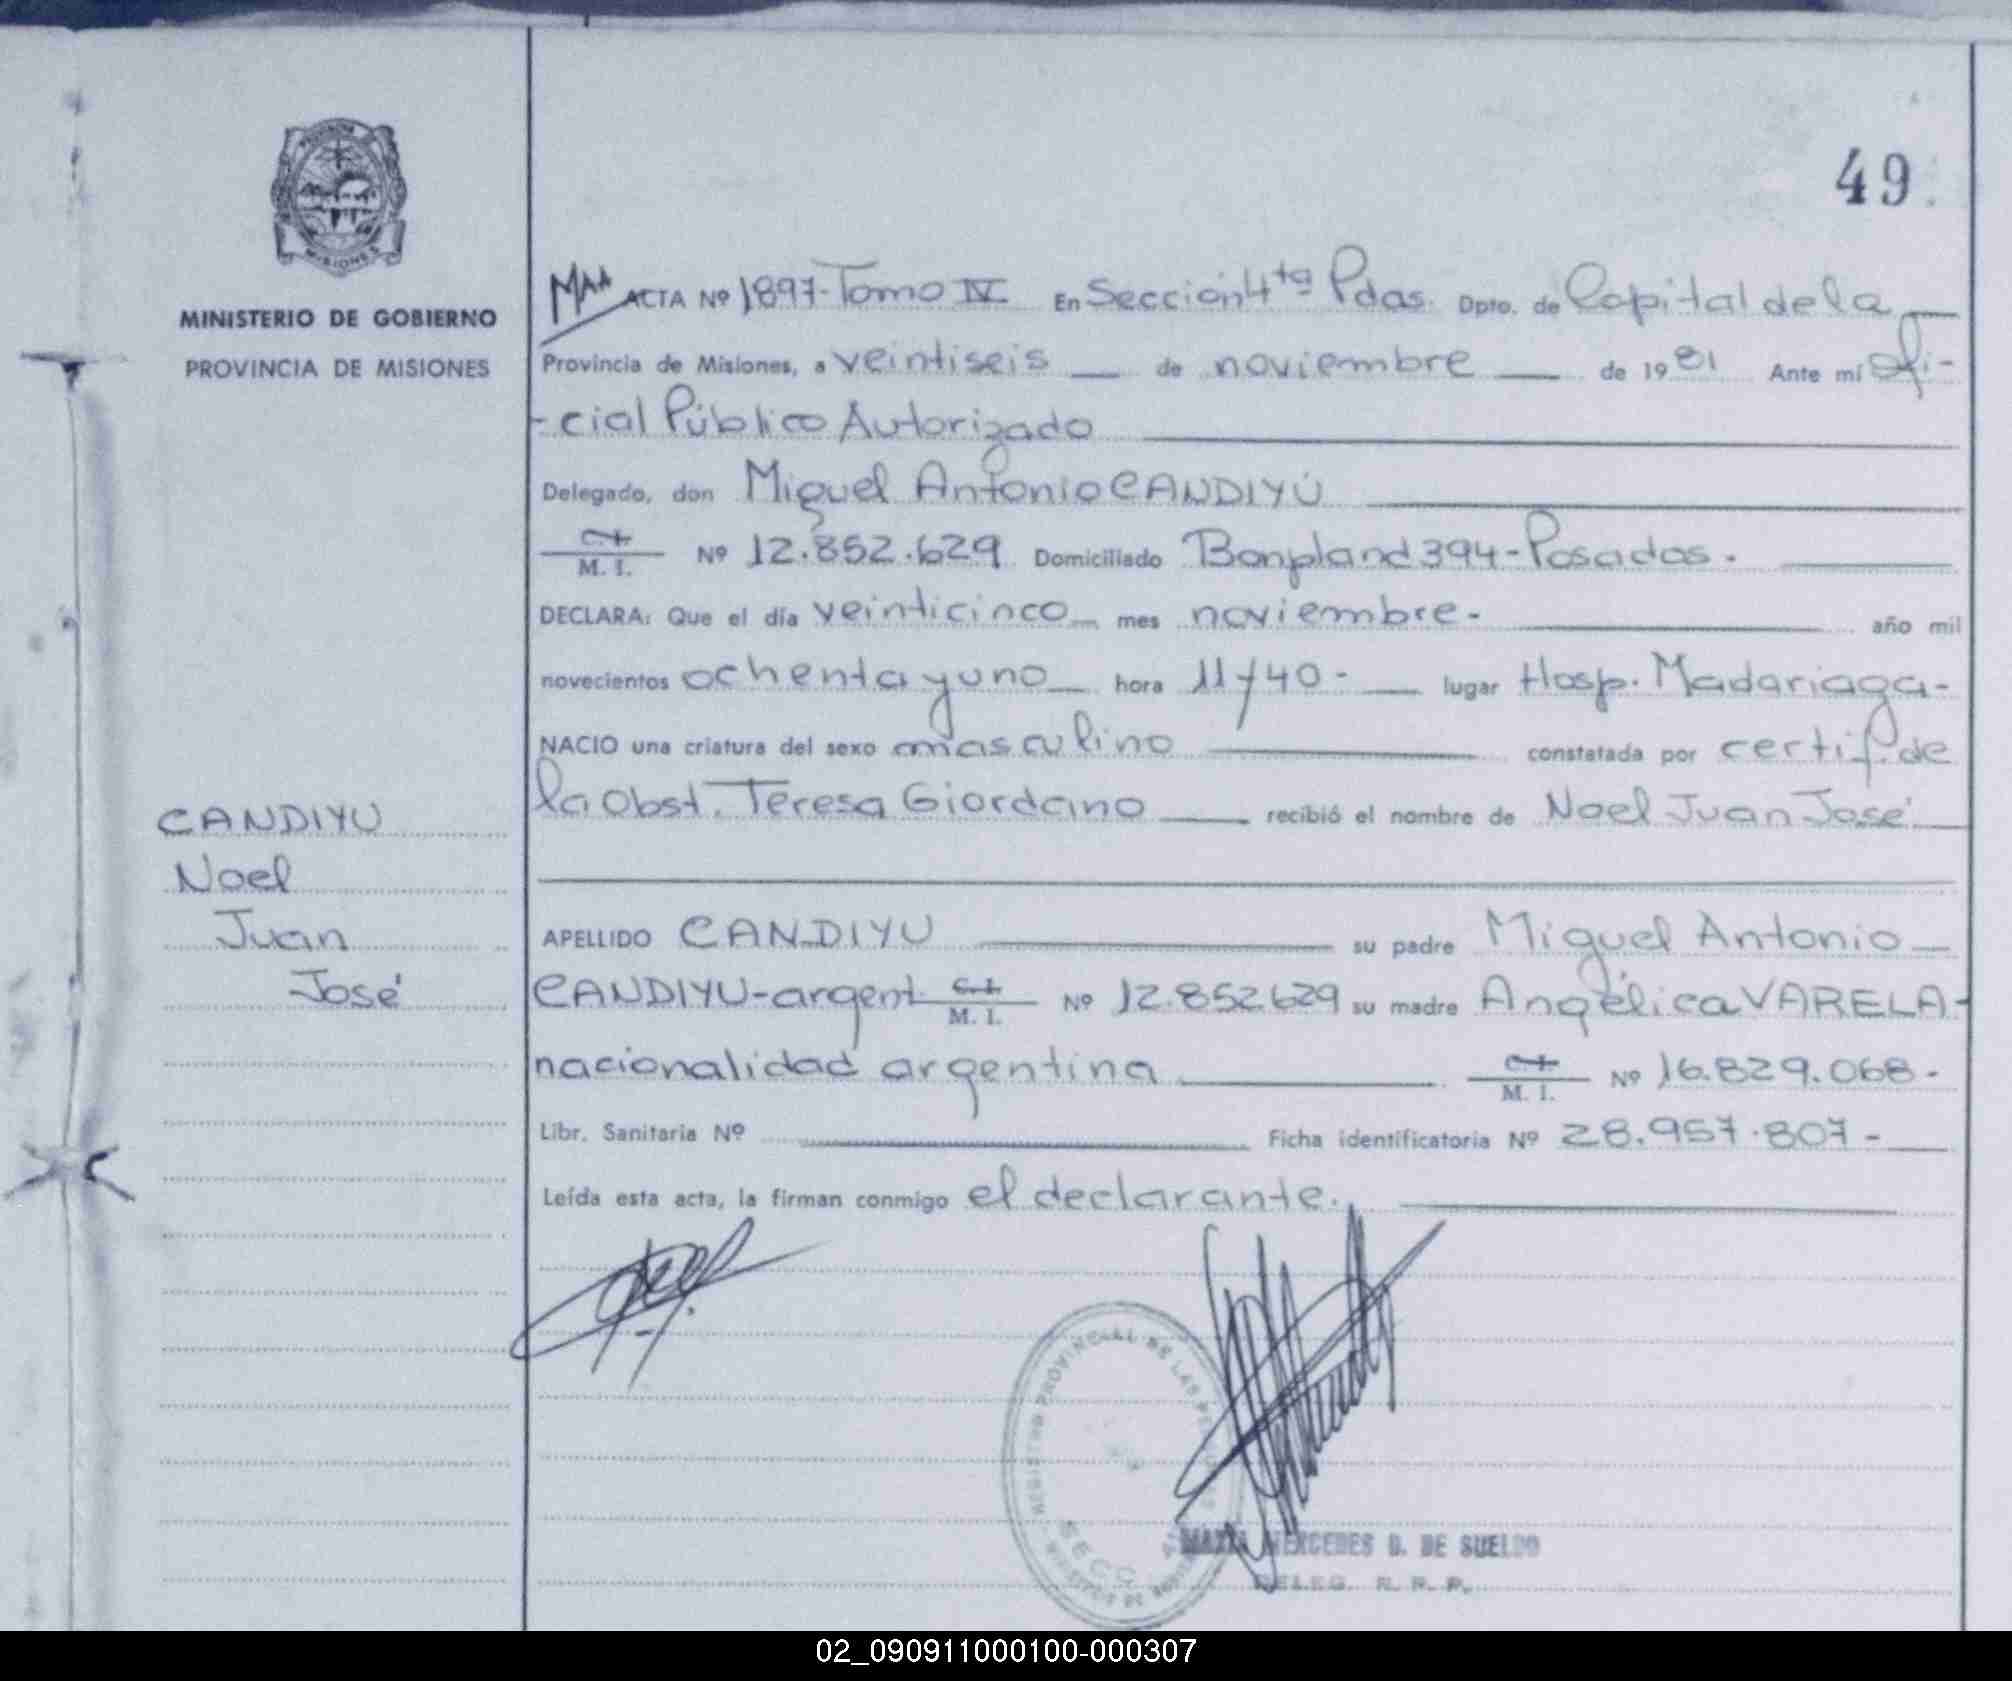 49.
MINISTERIO DE GOBIERNO
PROVINCIA DE MISIONES
ACTA Nº 1897-Tomo IV En Sección 4ta Pdas. Dpto. de Capital de la
Provincia de Misiones, a veintiseis de noviembre de 1981 Ante mí Ofi-
-cial Público Autorizado
Delegado, don Miguel Antonio CANDIYÚ
C.I. M. I. Nº 12.852.629 Domiciliado Bonpland 394-Posadas.
DECLARA: Que el día veinticinco mes noviembre- año mil
novecientos ochenta y uno hora 11 y 40- lugar Hosp. Madariaga-
NACIO una criatura del sexo masculino constatada por certif. de
la Obst. Teresa Giordano recibió el nombre de Noel Juan José
CANDIYU
Noel
Juan
José
APELLIDO CANDIYU su padre Miguel Antonio
CANDIYU-argent C.I. M. I. Nº 12.852.629 su madre Angélica VARELA-
nacionalidad argentina C.I. M. I. Nº 16.829.068-
Libr. Sanitaria Nº Ficha identificatoria Nº 28.957.807-
Leída esta acta, la firman conmigo el declarante.
REGISTRO PROVINCIAL DE LAS
MERCEDES D. DE SUELDO
DELEG. R. R. P.
02_090911000100-000307